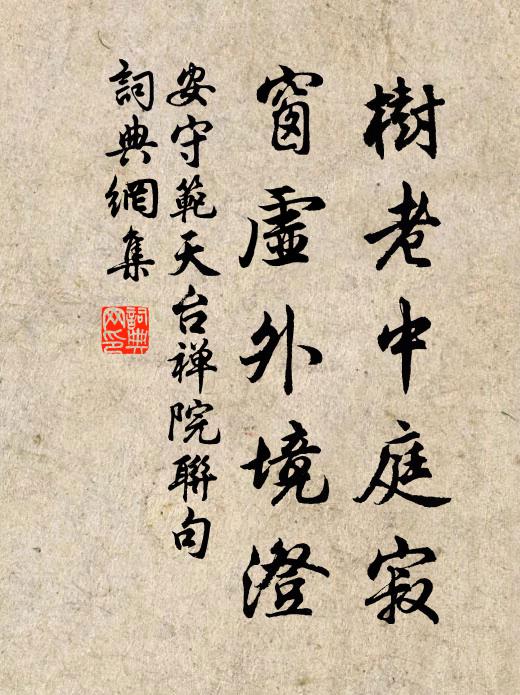 樹老中庭寂
窗虛外境澄
安守範天台禅院聯句
詞典網集
詞典网印